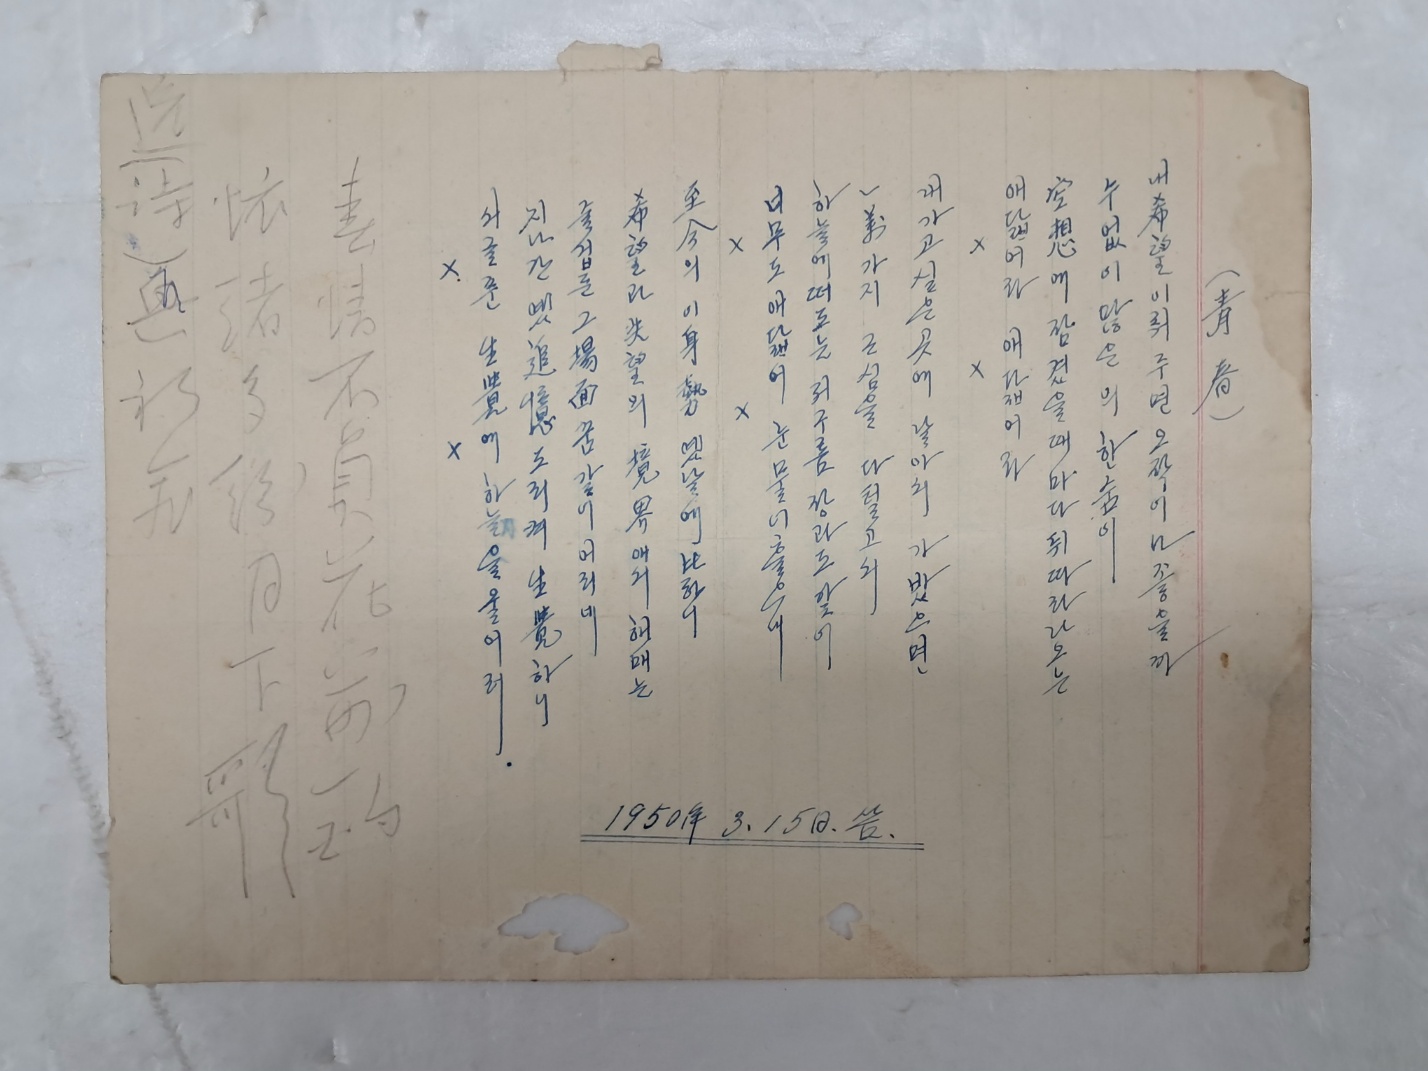 (青春)
내 希望이뤄 주면 오작이나 좋을까
수없이 많은 의 한숨이
空想에 잠겼을때마다 뒤따라라오는
애닲어라 애닲어라
× ×
내가고싶은곳에 날아서 가봤으면
萬가지 근심을 다털고서
하늘에떠도는 뭐구름장과도같이
너무도애닲어 눈물이흘으네
× ×
至今의 이身勢 옛날에比하니
希望과失望의 境界에서 헤매는
즐겁든 그場面 꿈같이어리네
지나간옛追憶도리켜 生覺하니
서글푼 生覺에 하늘을울어러.
× ×
1950年 3.15日. 씀.
春情不負花前
懷緖多 月下歌